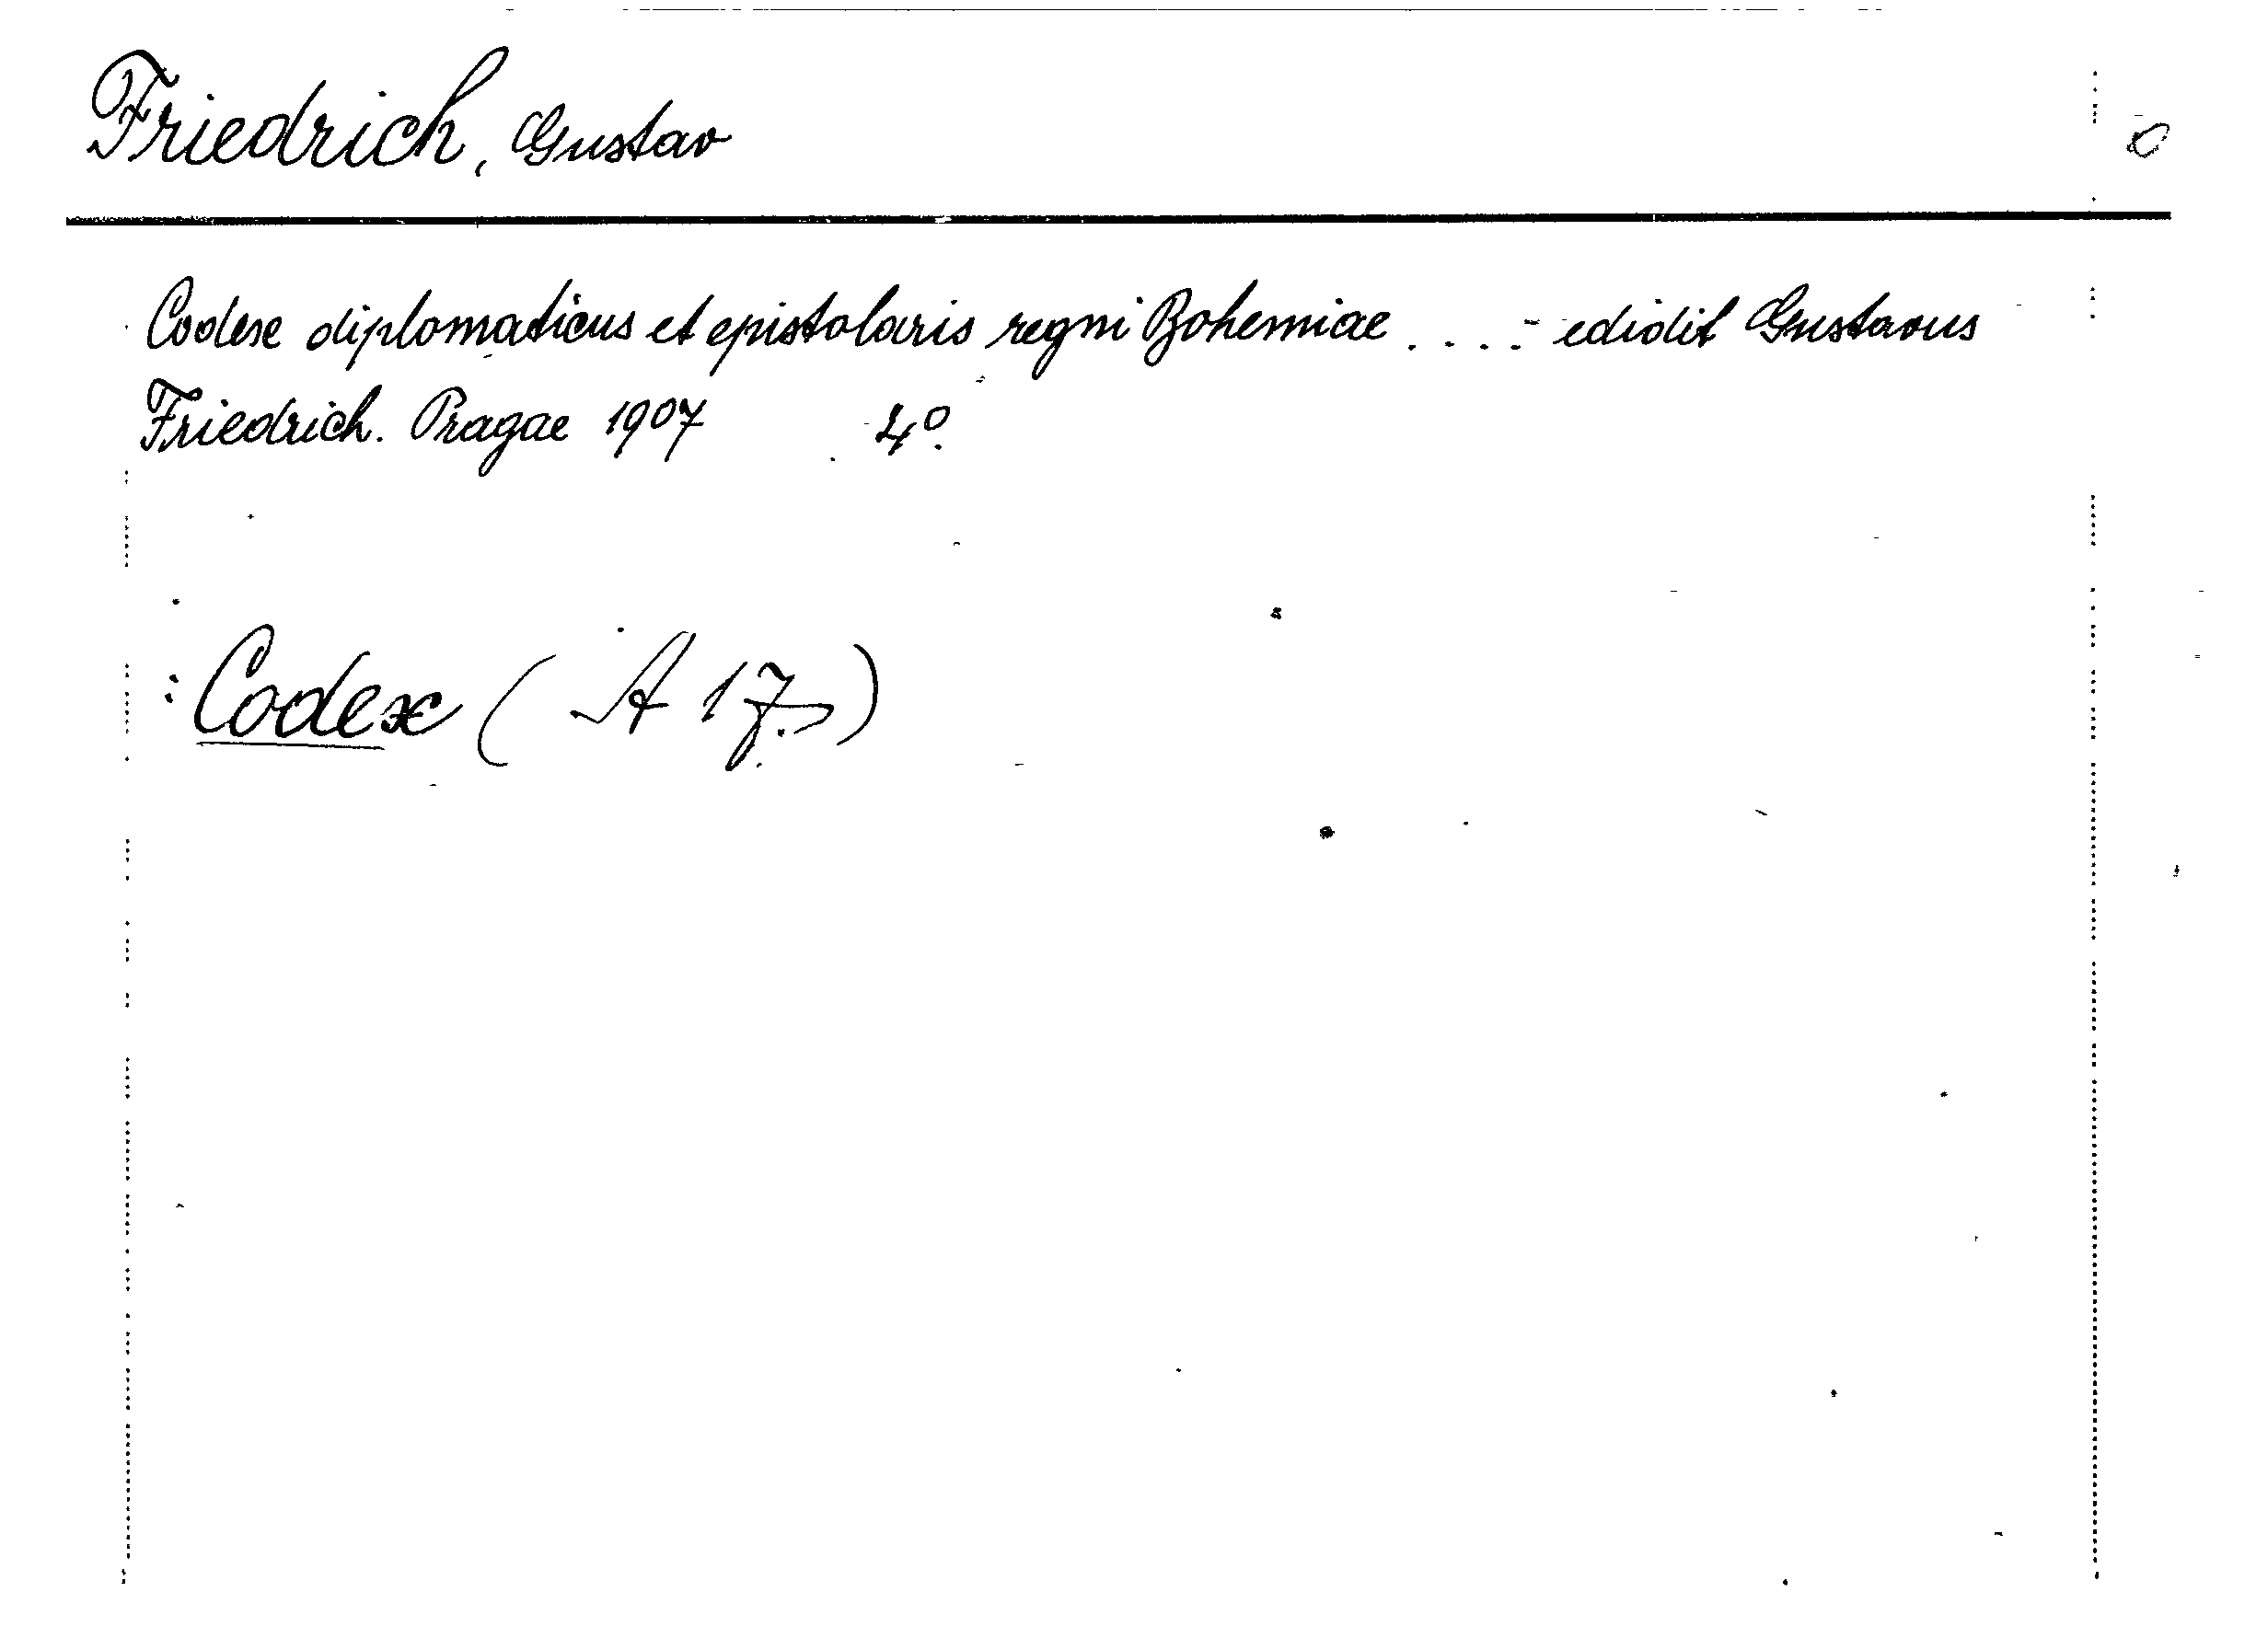 Friedrich, Gustav
Codex diplomaticus et epistolaris regni Bohemiae . . . . edidit Gustavus
Friedrich. Pragae 1907 4°
Codex ( A 17. )